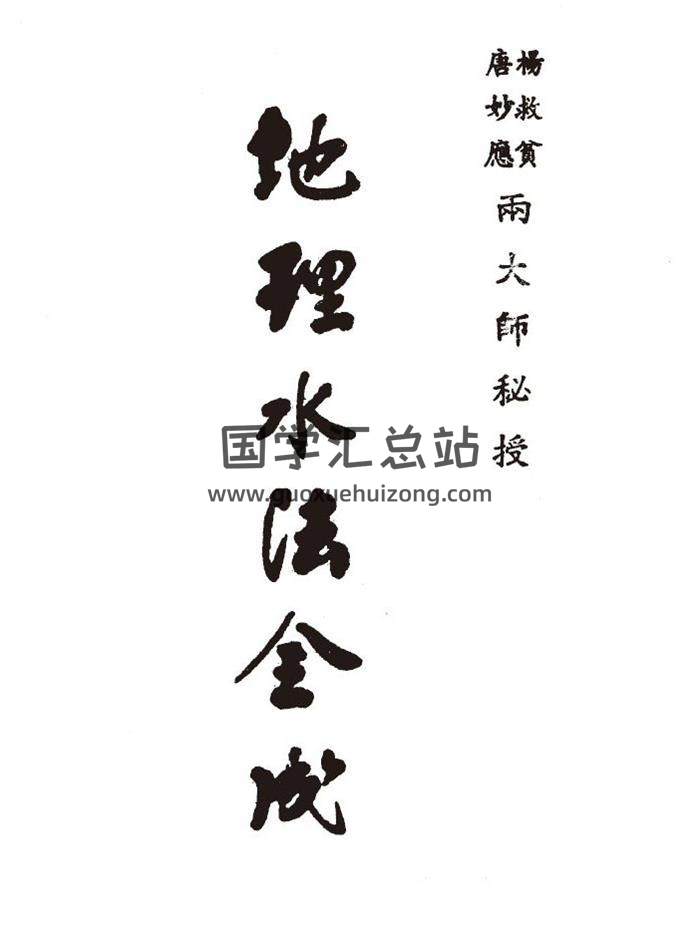 楊救貧
唐妙應
兩大師秘授
地理水法全成
国学汇总站
www.guoxuehuizong.com